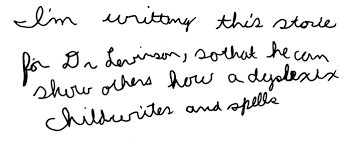 I'm writting this store
for Dr Levinson, sothat he can
show others how a dyslexix
childwrites and spells